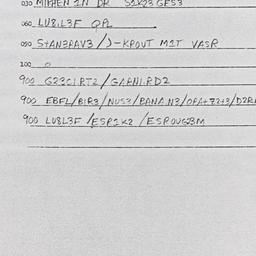 030 MIPHEN IN DR S1K23 GES3
060 LU8iL3F QPL
090 S+AN3RAV3/J-KPOUT M1T VASR
100 0
900 G23CIRT2/GARNI.RD2
900 EBFL/BIR3/NUS3/BANA.N3/ORA+72+3/D2R
900 LU8L3F/ESP1K2/ESROUG3M